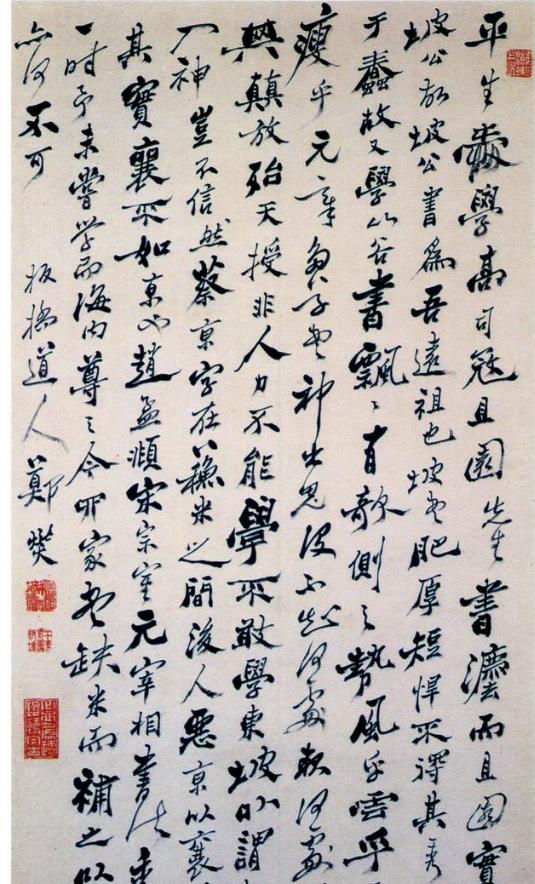 平生愛學高司寇且園先生書灋而且園實
坡公故坡公書爲吾遠祖也坡書肥厚短悍不得其秀
于蠢故又學山谷書飄〻有欹側之勢風乎雲乎
瘦乎元章書神出鬼沒不知何處起何處
興顛放殆天授非人力不能學不敢學東坡以謂
入神豈不信然蔡京字在蘇米之間後人惡京以襄
其實襄不如京也趙孟頫宋宗室元宰相書法秀
一時予未嘗學而海內尊之今四家書缺米而補之以
亦何不可
板橋道人鄭燮